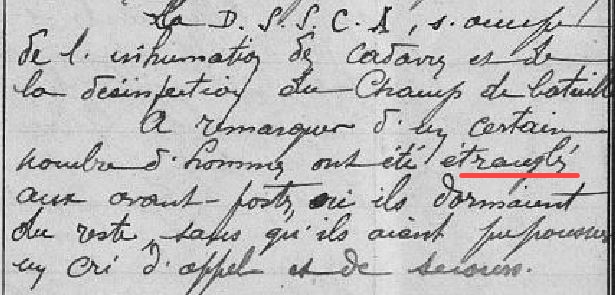 La D. S. S. C. A, s'occupe
de l'inhumation des cadavres et de
la désinfection du Champ de bataille
A remarquer d'un certain
nombre d'hommes ont été étranglés
aux avant-postes, où ils dormaient
du reste, sans qu'ils aient pu pousser
un cri d'appel et de secours.